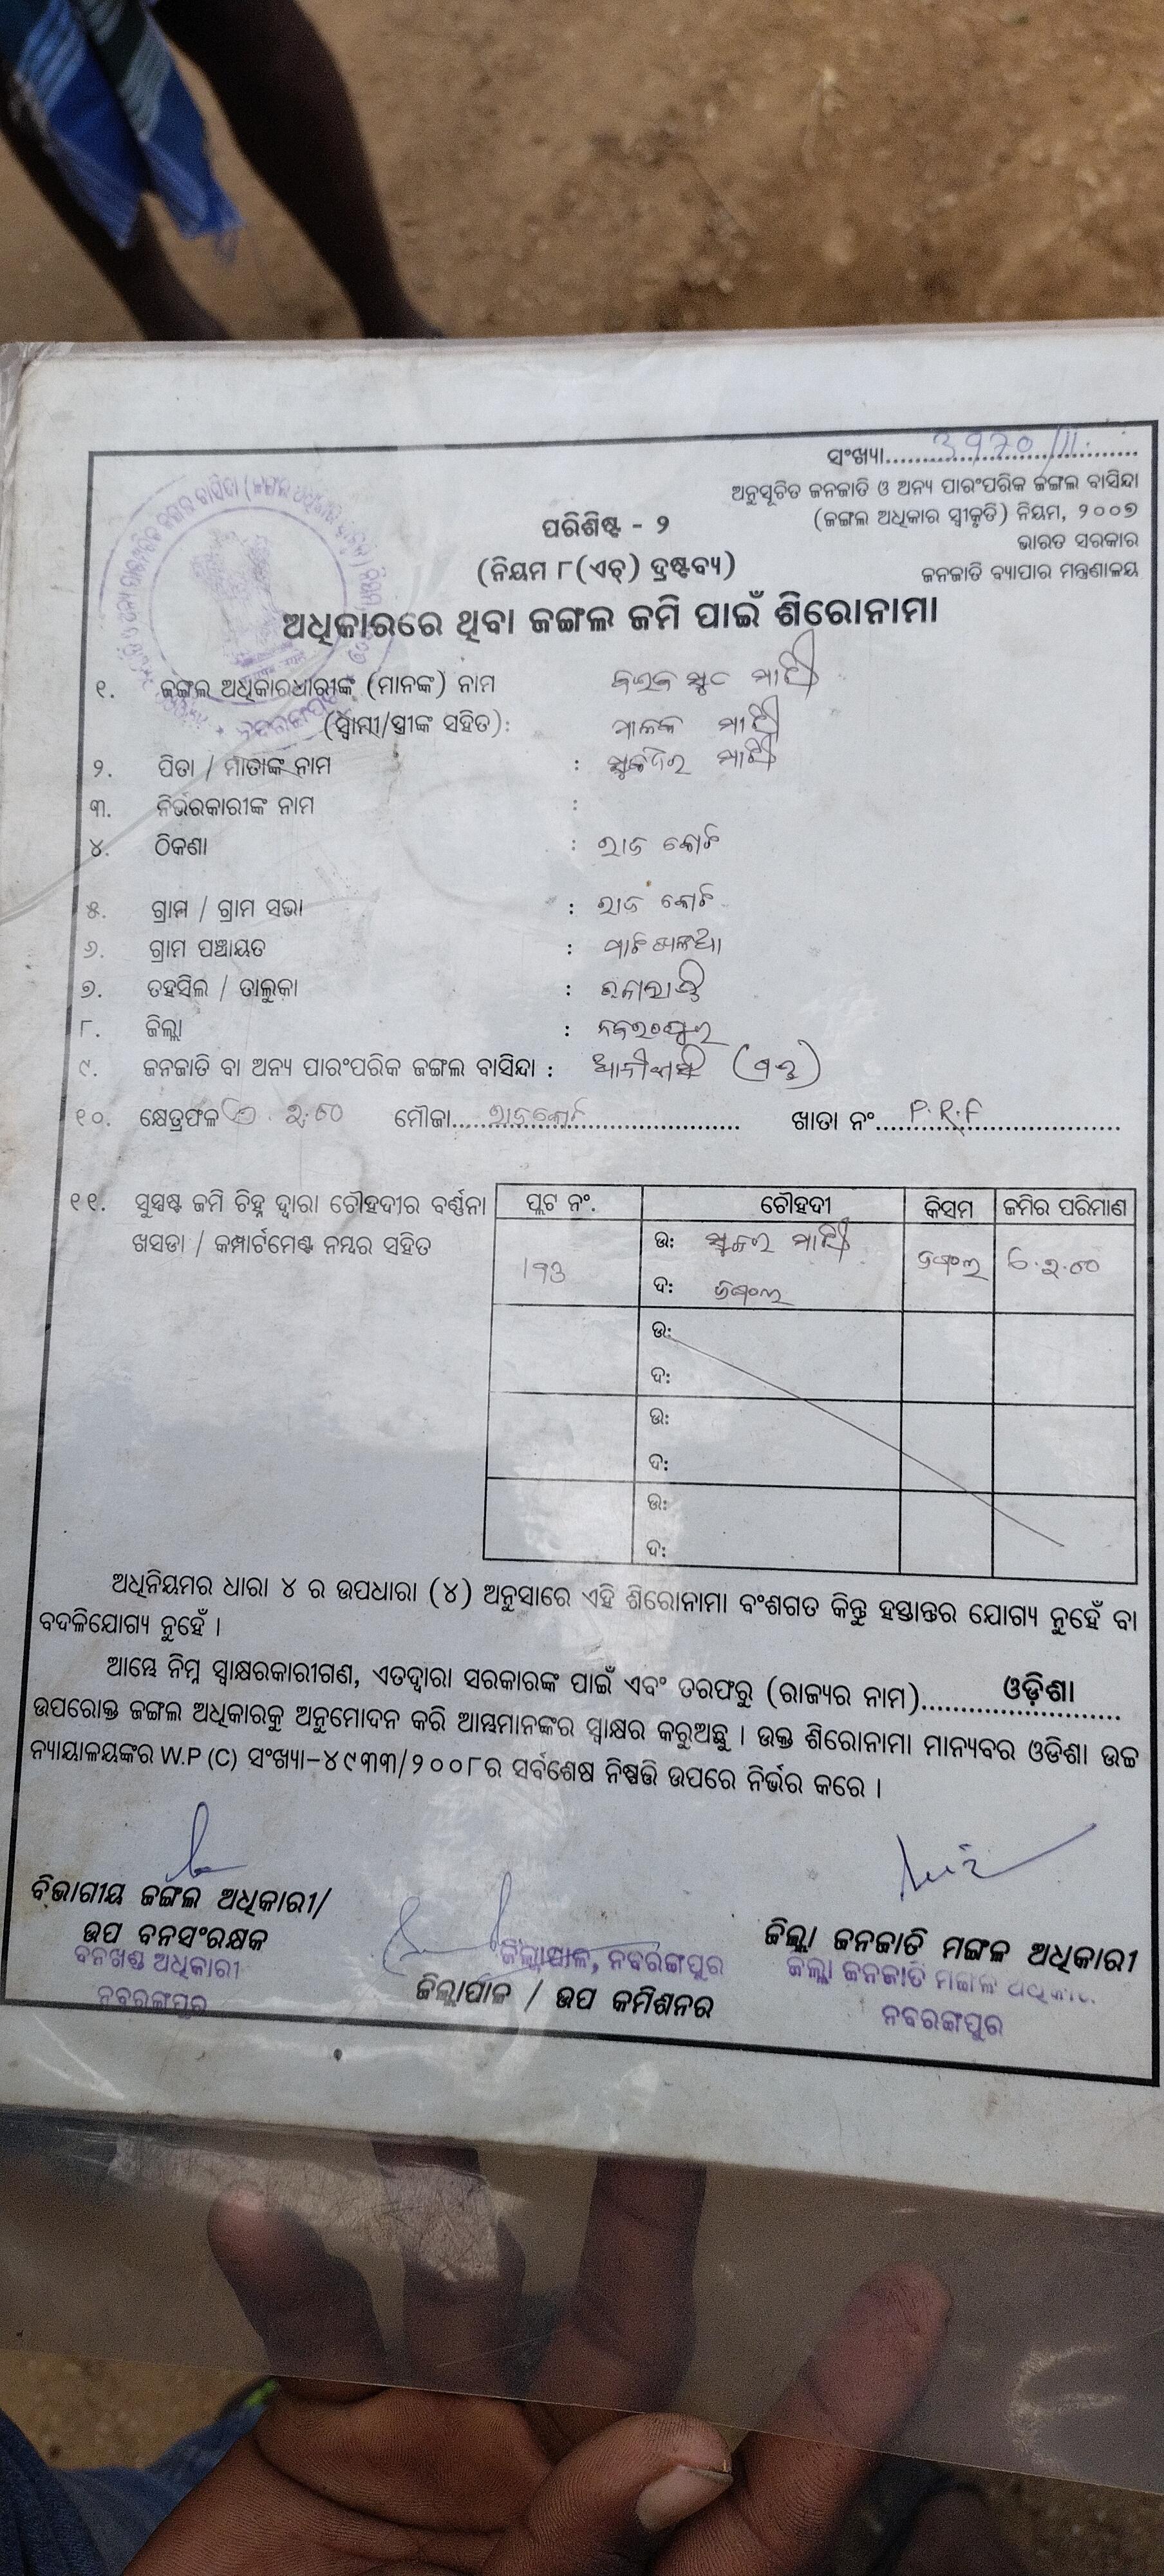 ସଂଖ୍ୟା........................
ଅନୁସୂଚିତ ଜନଜାତି ଓ ଅନ୍ୟ ପାରଂପରିକ ଜଙ୍ଗଲ ବାସିନ୍ଦା
(ଜଙ୍ଗଲ ଅଧିକାର ସ୍ୱୀକୃତି) ନିୟମ, ୨୦୦୭
ଭାରତ ସରକାର
ଜନଜାତି ବ୍ୟାପାର ମନ୍ତ୍ରଣାଳୟ
ପରିଶିଷ୍ଟ - ୨
(ନିୟମ ୮(ଏଚ୍) ଦ୍ରଷ୍ଟବ୍ୟ)
ଅଧିକାରରେ ଥିବା ଜଙ୍ଗଲ ଜମି ପାଇଁ ଶିରୋନାମା
୧. ଜଙ୍ଗଲ ଅଧିକାରଧାରୀଙ୍କ (ମାନଙ୍କ) ନାମ ମାଝୀ
(ସ୍ୱାମୀ/ସ୍ତ୍ରୀଙ୍କ ସହିତ): ମାଝୀ
୨. ପିତା / ମାତାଙ୍କ ନାମ : ମାଝୀ
୩. ନିର୍ଭରକାରୀଙ୍କ ନାମ :
୪. ଠିକଣା :
୫. ଗ୍ରାମ / ଗ୍ରାମ ସଭା :
୬. ଗ୍ରାମ ପଞ୍ଚାୟତ :
୭. ତହସିଲ / ତାଲୁକା :
୮. ଜିଲ୍ଲା : ନବରଙ୍ଗପୁର
୯. ଜନଜାତି ବା ଅନ୍ୟ ପାରଂପରିକ ଜଙ୍ଗଲ ବାସିନ୍ଦା :
୧୦. କ୍ଷେତ୍ରଫଳ ମୌଜା........................ ଖାତା ନଂ P.R.F
୧୧. ସୁସ୍ପଷ୍ଟ ଜମି ଚିହ୍ନ ଦ୍ୱାରା ଚୌହଦୀର ବର୍ଣ୍ଣନା
ଖସଡା / କମ୍ପାର୍ଟମେଣ୍ଟ ନମ୍ବର ସହିତ
ପ୍ଲଟ ନଂ. ଚୌହଦୀ କିସମ ଜମିର ପରିମାଣ
ଉ: ମାଝୀ
ଦ: ଜଙ୍ଗଲ
ଜଙ୍ଗଲ
ଉ:
ଦ:
ଉ:
ଦ:
ଉ:
ଦ:
ଅଧିନିୟମର ଧାରା ୪ ର ଉପଧାରା (୪) ଅନୁସାରେ ଏହି ଶିରୋନାମା ବଂଶଗତ କିନ୍ତୁ ହସ୍ତାନ୍ତର ଯୋଗ୍ୟ ନୁହେଁ ବା
ବଦଳିଯୋଗ୍ୟ ନୁହେଁ ।
ଆମ୍ଭେ ନିମ୍ନ ସ୍ୱାକ୍ଷରକାରୀଗଣ, ଏତଦ୍ୱାରା ସରକାରଙ୍କ ପାଇଁ ଏବଂ ତରଫରୁ (ରାଜ୍ୟର ନାମ)......ଓଡ଼ିଶା......
ଉପରୋକ୍ତ ଜଙ୍ଗଲ ଅଧିକାରକୁ ଅନୁମୋଦନ କରି ଆମ୍ଭମାନଙ୍କର ସ୍ୱାକ୍ଷର କରୁଅଛୁ । ଉକ୍ତ ଶିରୋନାମା ମାନ୍ୟବର ଓଡିଶା ଉଚ୍ଚ
ନ୍ୟାୟାଳୟଙ୍କର W.P (C) ସଂଖ୍ୟା-୪୯୩୩/୨୦୦୮ର ସର୍ବଶେଷ ନିଷ୍ପତ୍ତି ଉପରେ ନିର୍ଭର କରେ ।
ବିଭାଗୀୟ ଜଙ୍ଗଲ ଅଧିକାରୀ/
ଉପ ବନସଂରକ୍ଷକ
ବନଖଣ୍ଡ ଅଧିକାରୀ
ନବରଙ୍ଗପୁର
ଜିଲ୍ଲାପାଳ, ନବରଙ୍ଗପୁର
ଜିଲ୍ଲାପାଳ / ଉପ କମିଶନର
ଜିଲ୍ଲା ଜନଜାତି ମଙ୍ଗଳ ଅଧିକାରୀ
ଜିଲ୍ଲା ଜନଜାତି ମଙ୍ଗଳ
ନବରଙ୍ଗପୁର